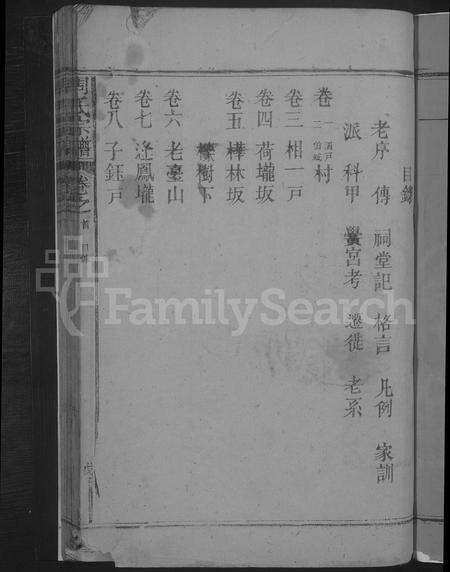 目錄
老序 傳 祠堂記 格言 凡例 家訓
派 科甲 黌宮考 遷徙 老系
卷 一 二 村
卷三 相一戸
卷四 荷壠坂
卷五 樺林坂
樹下
卷六 老臺山
卷七 逢鳳壠
卷八 子鈺戸
周氏宗譜 卷之
FamilySearch